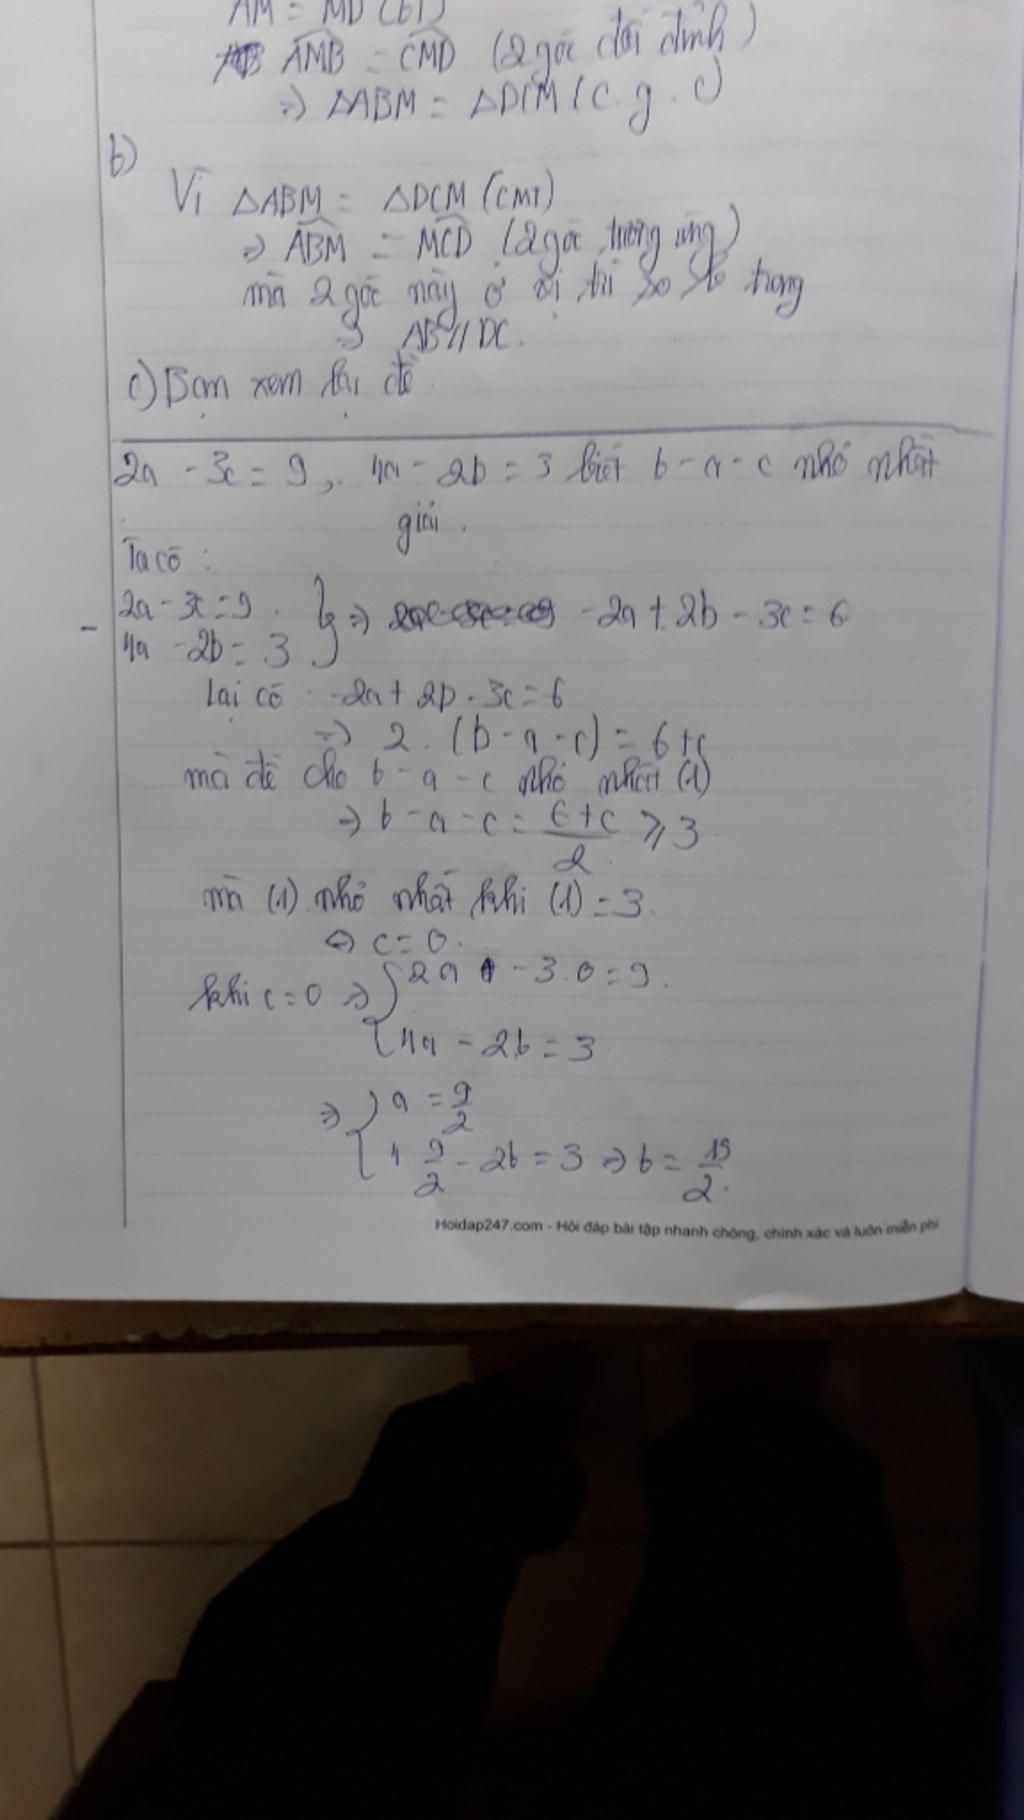 AM = MD (GT)
AMB = CMD (2 góc đối đỉnh)
=> △ABM = △DCM (c.g.c)
b)
Vì △ABM = △DCM (CMT)
=> ABM = MCD (2 góc tương ứng)
mà 2 góc này ở vị trí so le trong
=> AB // DC.
c) Bạn xem lại đề
2a - 3c = 9, 4a - 2b = 3 biết b - a - c nhỏ nhất
giải.
Ta có :
2a - 3c = 9
- 4a - 2b = 3 } => -2a + 2b - 3c = 6
Lại có : -2a + 2b - 3c = 6
=> 2. (b - a - c) = 6 + c
mà đề cho b - a - c nhỏ nhất (1)
=> b - a - c = (6 + c)/2 ⩾ 3
mà (1) nhỏ nhất khi (1) = 3.
<=> c = 0.
khi c = 0 => { 2a - 3.0 = 9.
4a - 2b = 3
=> { a = 9/2
4 9/2 - 2b = 3 => b = 15/2.
Hoidap247.com - Hỏi đáp bài tập nhanh chóng, chính xác và luôn miễn phí